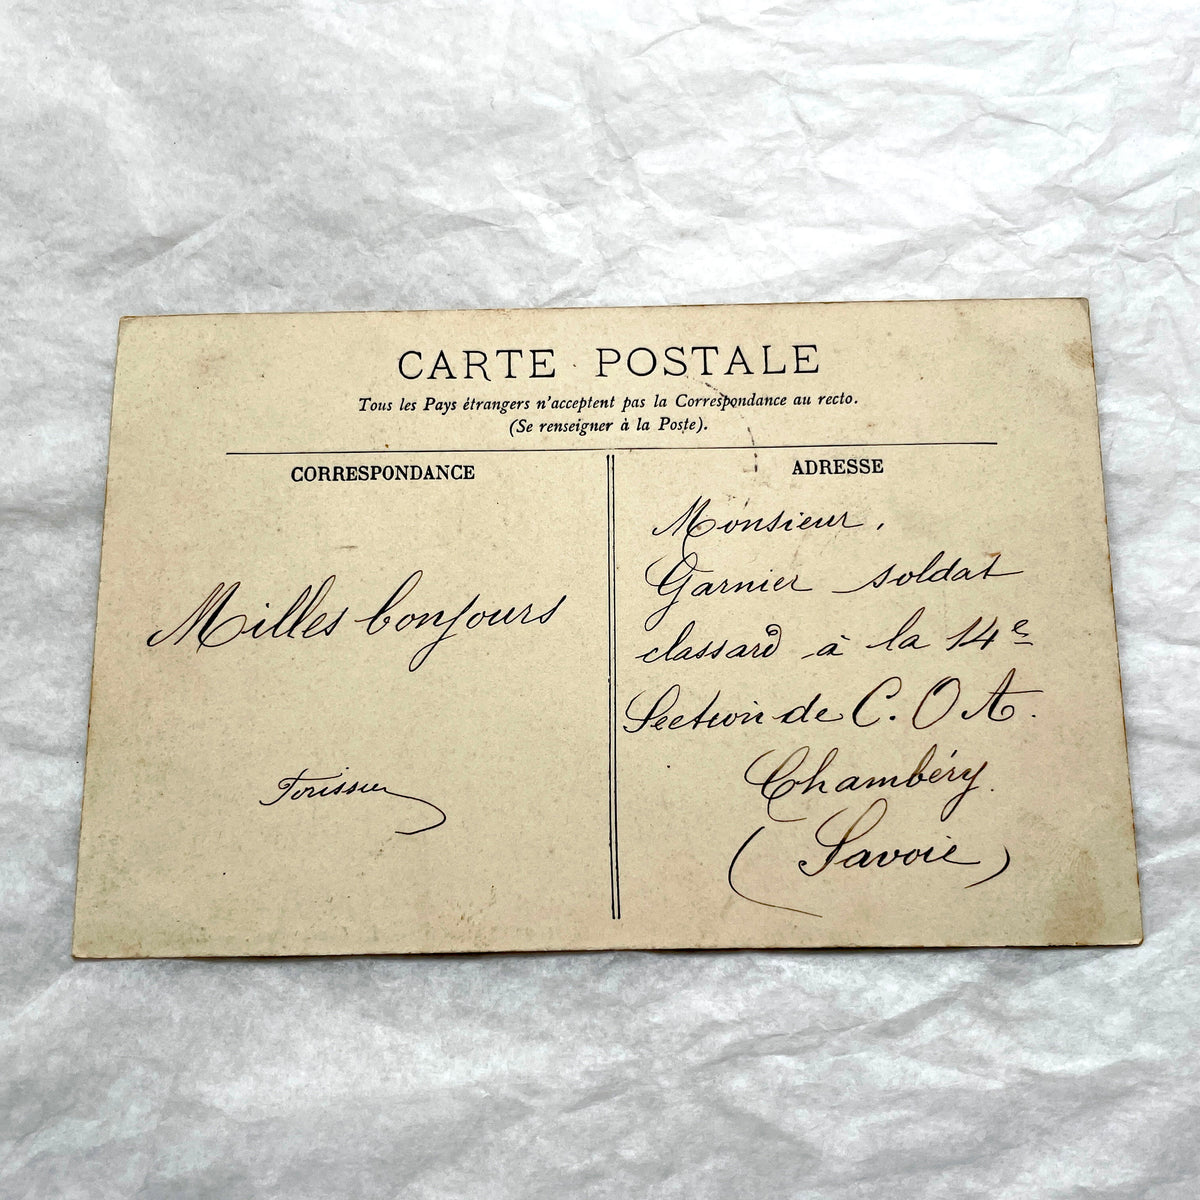 CARTE POSTALE
Tous les Pays étrangers n'acceptent pas la Correspondance au recto.
(Se renseigner à la Poste).
CORRESPONDANCE
Milles bonjours
ADRESSE
Monsieur,
Garnier soldat
classard à la 14e
Section de C. O A.
Chambéry.
(Savoie)